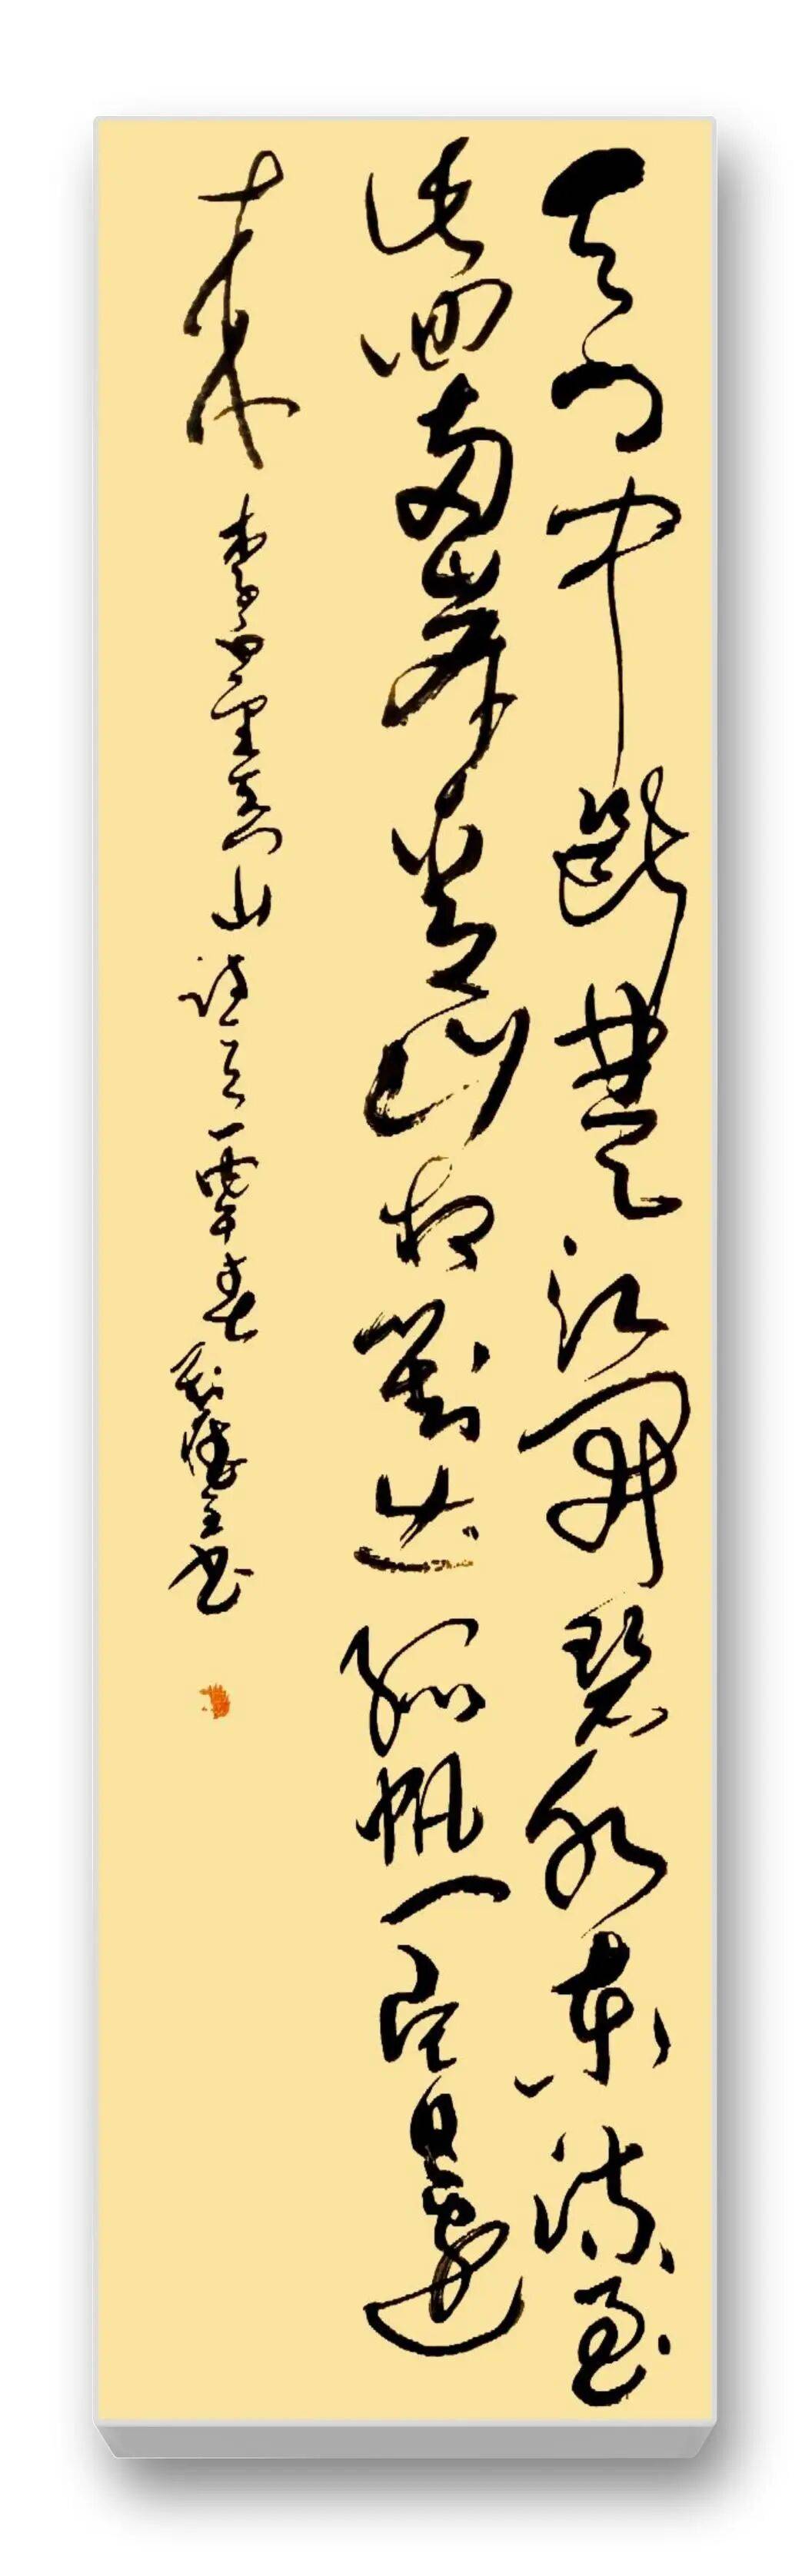 天门中断楚江开碧水东流至
此回两岸青山相对出孤帆一片日边
来李白望天门山诗一首